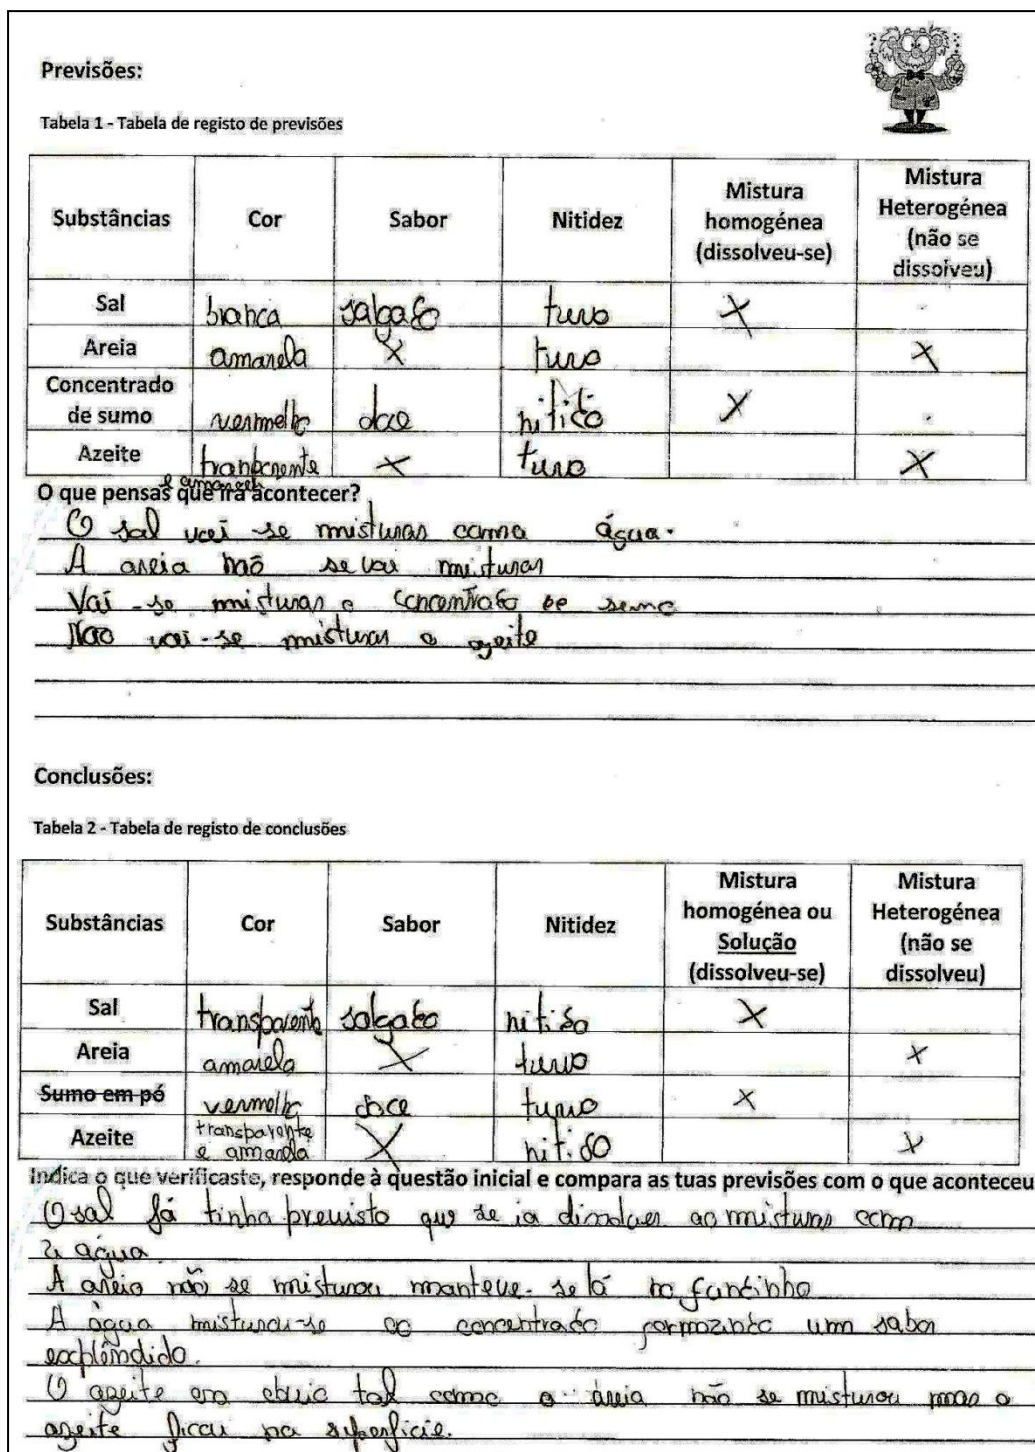 Previsões:
Tabela 1 - Tabela de registo de previsões
Substâncias Cor Sabor Nitidez Mistura homogénea (dissolveu-se) Mistura Heterogénea (não se dissolveu)
Sal branca salgado turvo X
Areia amarela X turvo X
Concentrado de sumo vermelho doce nitido X
Azeite X turvo X
e amarela
O que pensas que irá acontecer?
O sal vai-se misturar coma água.
A areia não se vai misturar
Vai-se misturar o concentrado de sumo
Não vai-se misturar o azeite
Conclusões:
Tabela 2 - Tabela de registo de conclusões
Substâncias Cor Sabor Nitidez Mistura homogénea ou Solução (dissolveu-se) Mistura Heterogénea (não se dissolveu)
Sal transparente salgado nitido X
Areia amarela X turvo X
Sumo em pó vermelho doce turvo X
Azeite transparente e amarela X nitido X
Indica o que verificaste, responde à questão inicial e compara as tuas previsões com o que aconteceu
O sal já tinha previsto que se ia ao misturar com
a água.
A areia não se misturou manteve-se lá no fundinho
A água misturou-se ao concentrado um sabor
O azeite tal como a areia não se misturou mas o
azeite ficou na superficie.